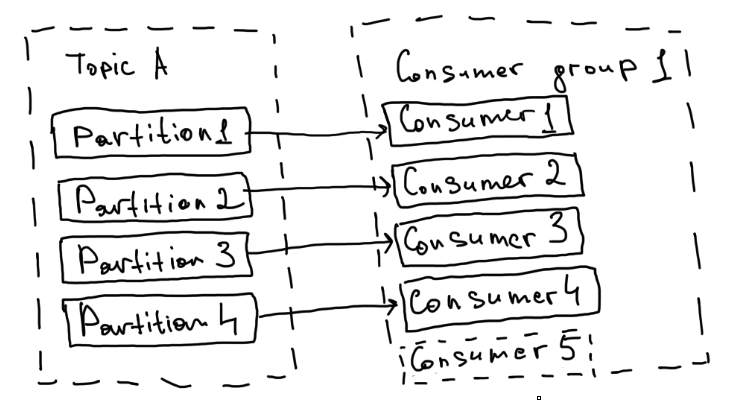 Topic A
Partition 1
Partition 2
Partition 3
Partition 4
Consumer group 1
Consumer 1
Consumer 2
Consumer 3
Consumer 4
Consumer 5